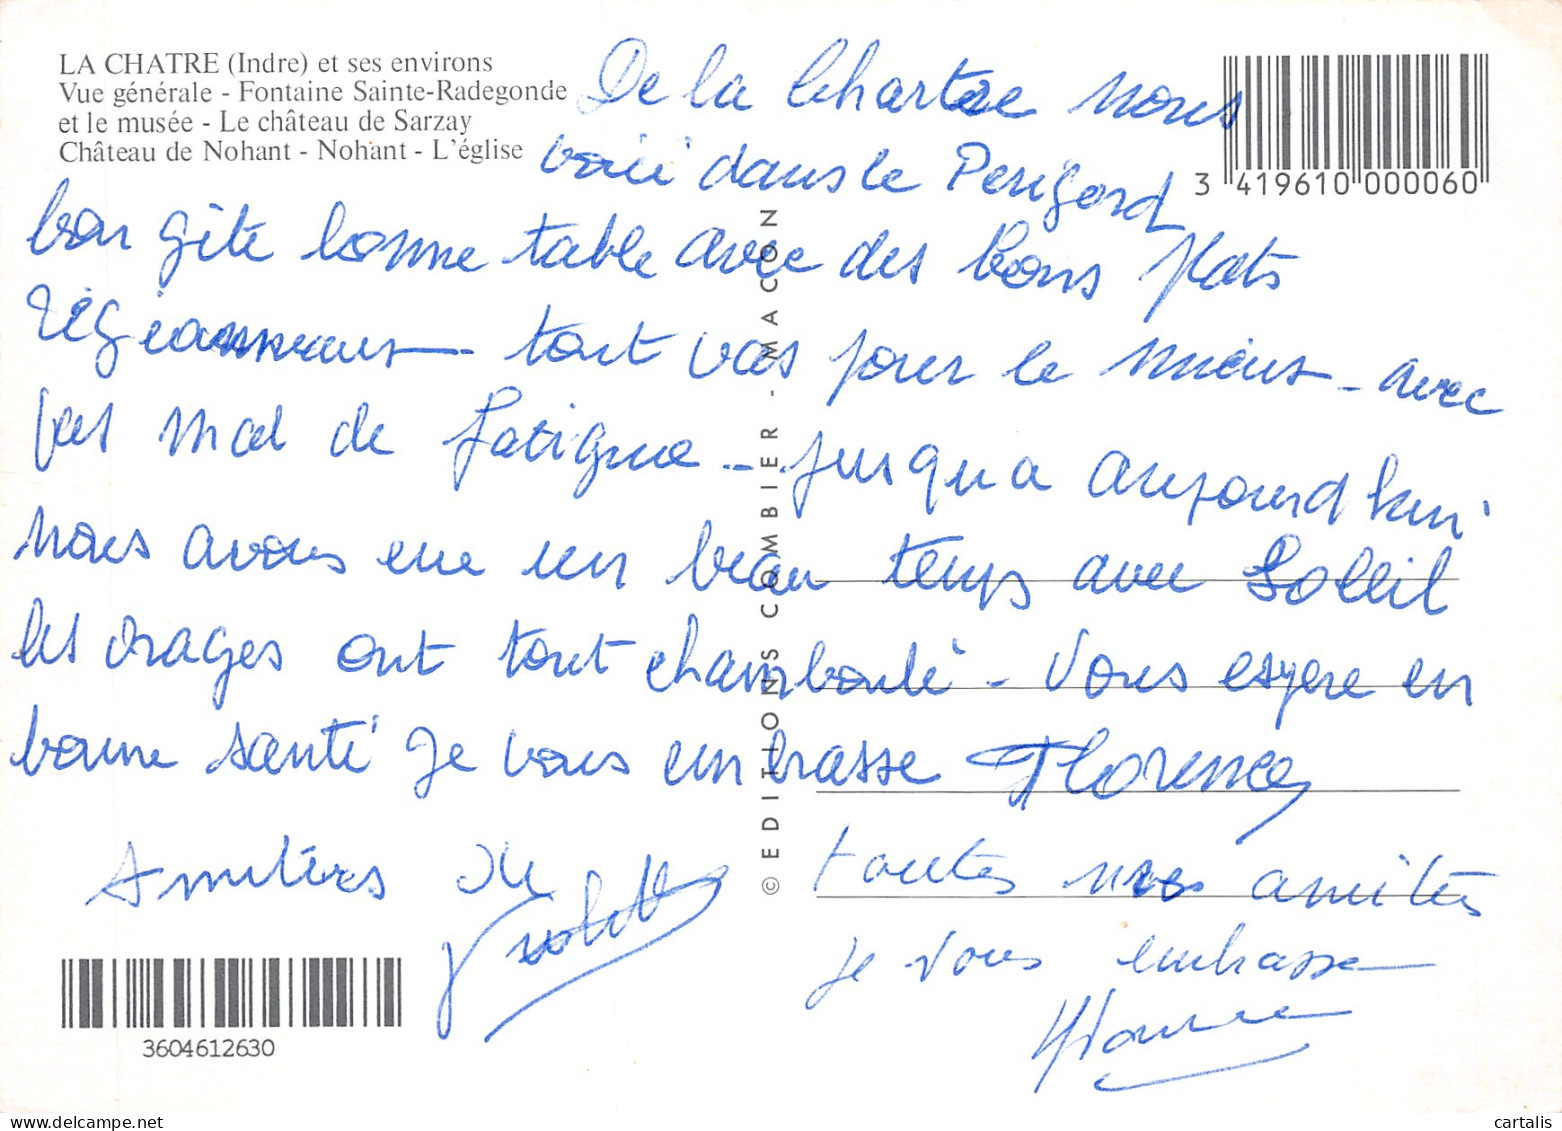 LA CHATRE (Indre) et ses environs
Vue générale - Fontaine Sainte-Radegonde
et le musée - Le château de Sarzay
Château de Nohant - Nohant - L'église
3 419610 000060
De la Chartre nous
voici dans le Perigord
bon gîte bonne table avec des bons plats
régionnaux - tout vas pour le mieux - avec
pas mal de fatigue - jusqu a aujourd hui
nous avons eue un beau temps avec Soleil
les orages ont tout chamboulé - Vous espere en
bonne santé je vous embrasse Florence
Amitiés de
Violette
toutes nos amitiés
je vous embrasse
© EDITIONS COMBIER - MACON
3604612630
cartalis